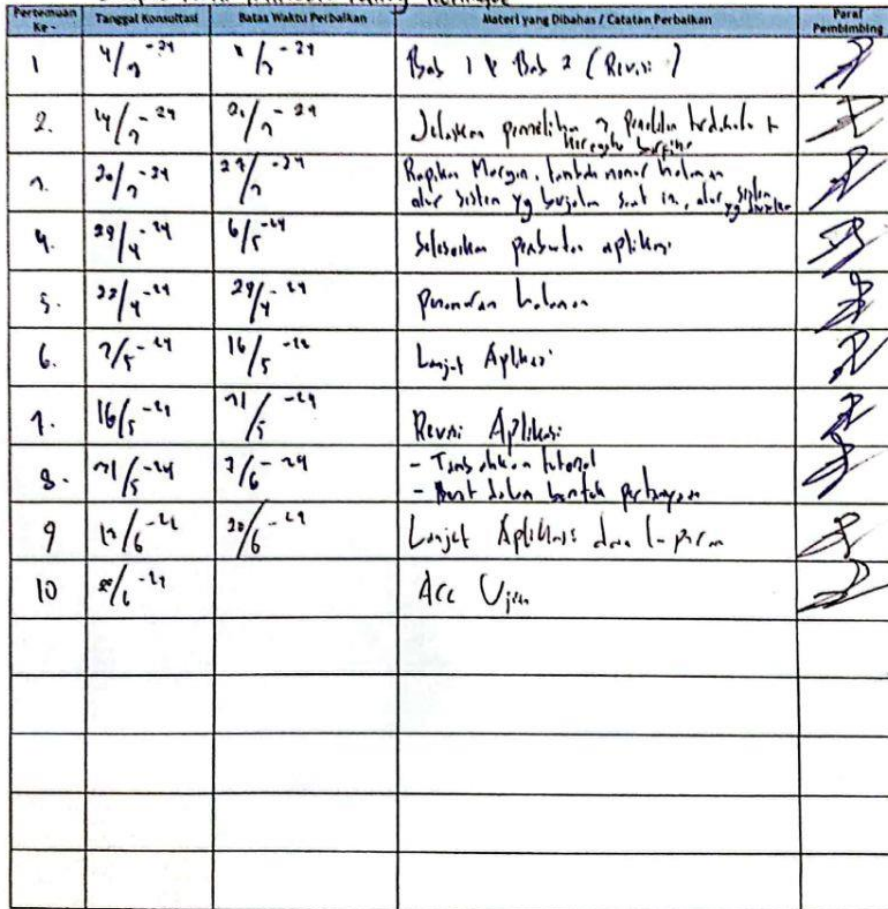 Pertemuan Ke - Tanggal Konsultasi Batas Waktu Perbaikan Materi yang Dibahas / Catatan Perbaikan Paraf Pembimbing
1 4/3-24 Bab 1 & Bab 2 (Revisi)
2. 14/3-24 Jelaskan
3. 20/3-24 27/3-24 Rapikan Margin, tambah nomor halaman
alur sistem yg berjalan saat ini, alur sistem yg
4. 29/4-24 6/5-24 Selesaikan pembuatan aplikasi
5. 22/4-24 29/4-24 Penomoran halaman
6. 7/5-24 16/5-24 Lanjut Aplikasi
7. 16/5-24 31/5-24 Revisi Aplikasi
8. 31/5-24 7/6-24 - Tambahkan tutorial
- Buat dalam bentuk pertanyaan
9 13/6-24 20/6-24 Lanjut Aplikasi dan Lampiran
10 Acc Ujian